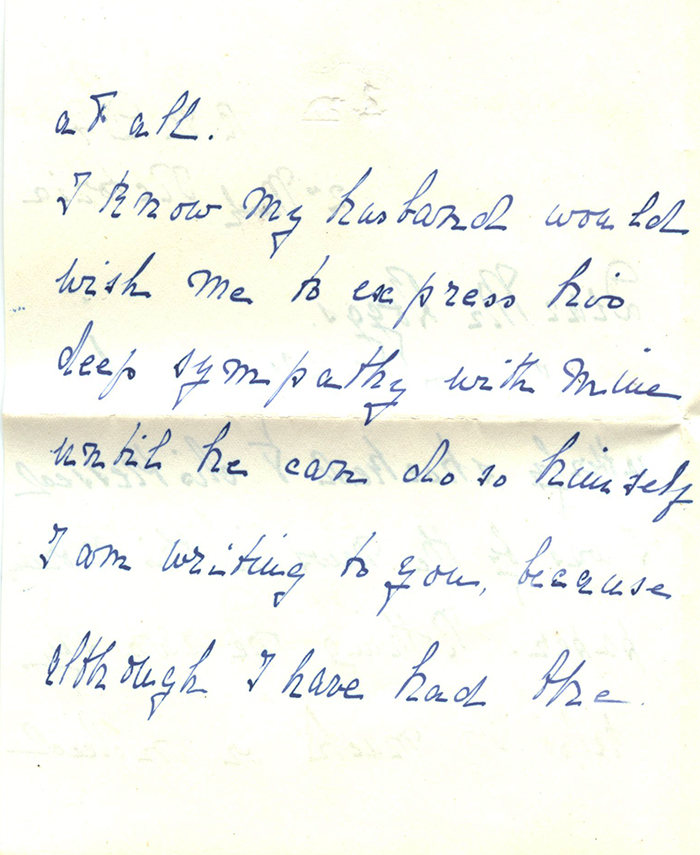 at all.
I know my husband would
wish me to express his
deep sympathy with mine
until he can do so himself
I am writing to you, because
although I have had the